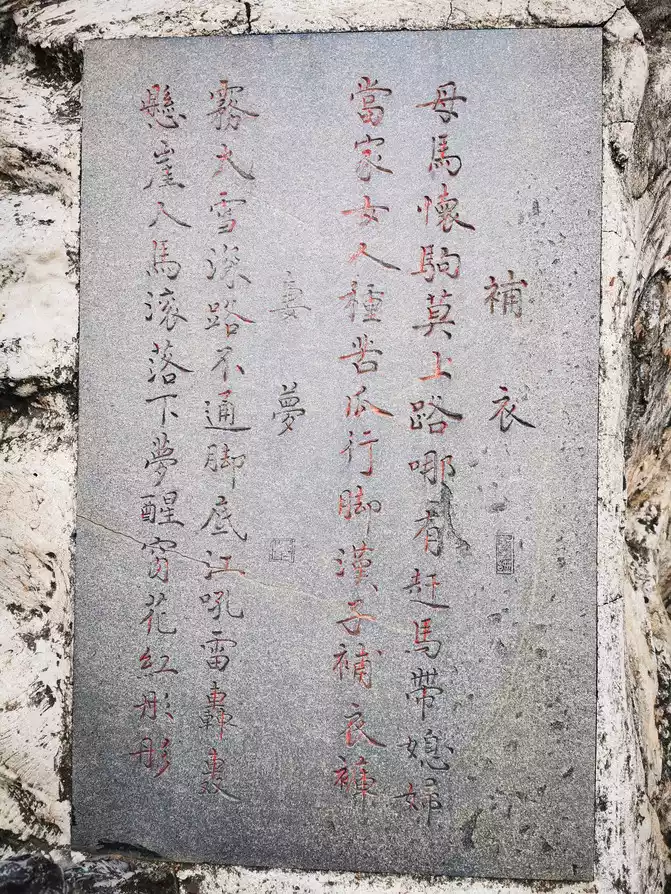 補衣
母馬懷駒莫上路哪有赶馬帶媳婦
當家女人種苦瓜行脚漢子補衣褲
妻夢
霧大雪深路不通脚底江吼雷轟
懸崖人馬滾落下夢醒窗花紅彤彤